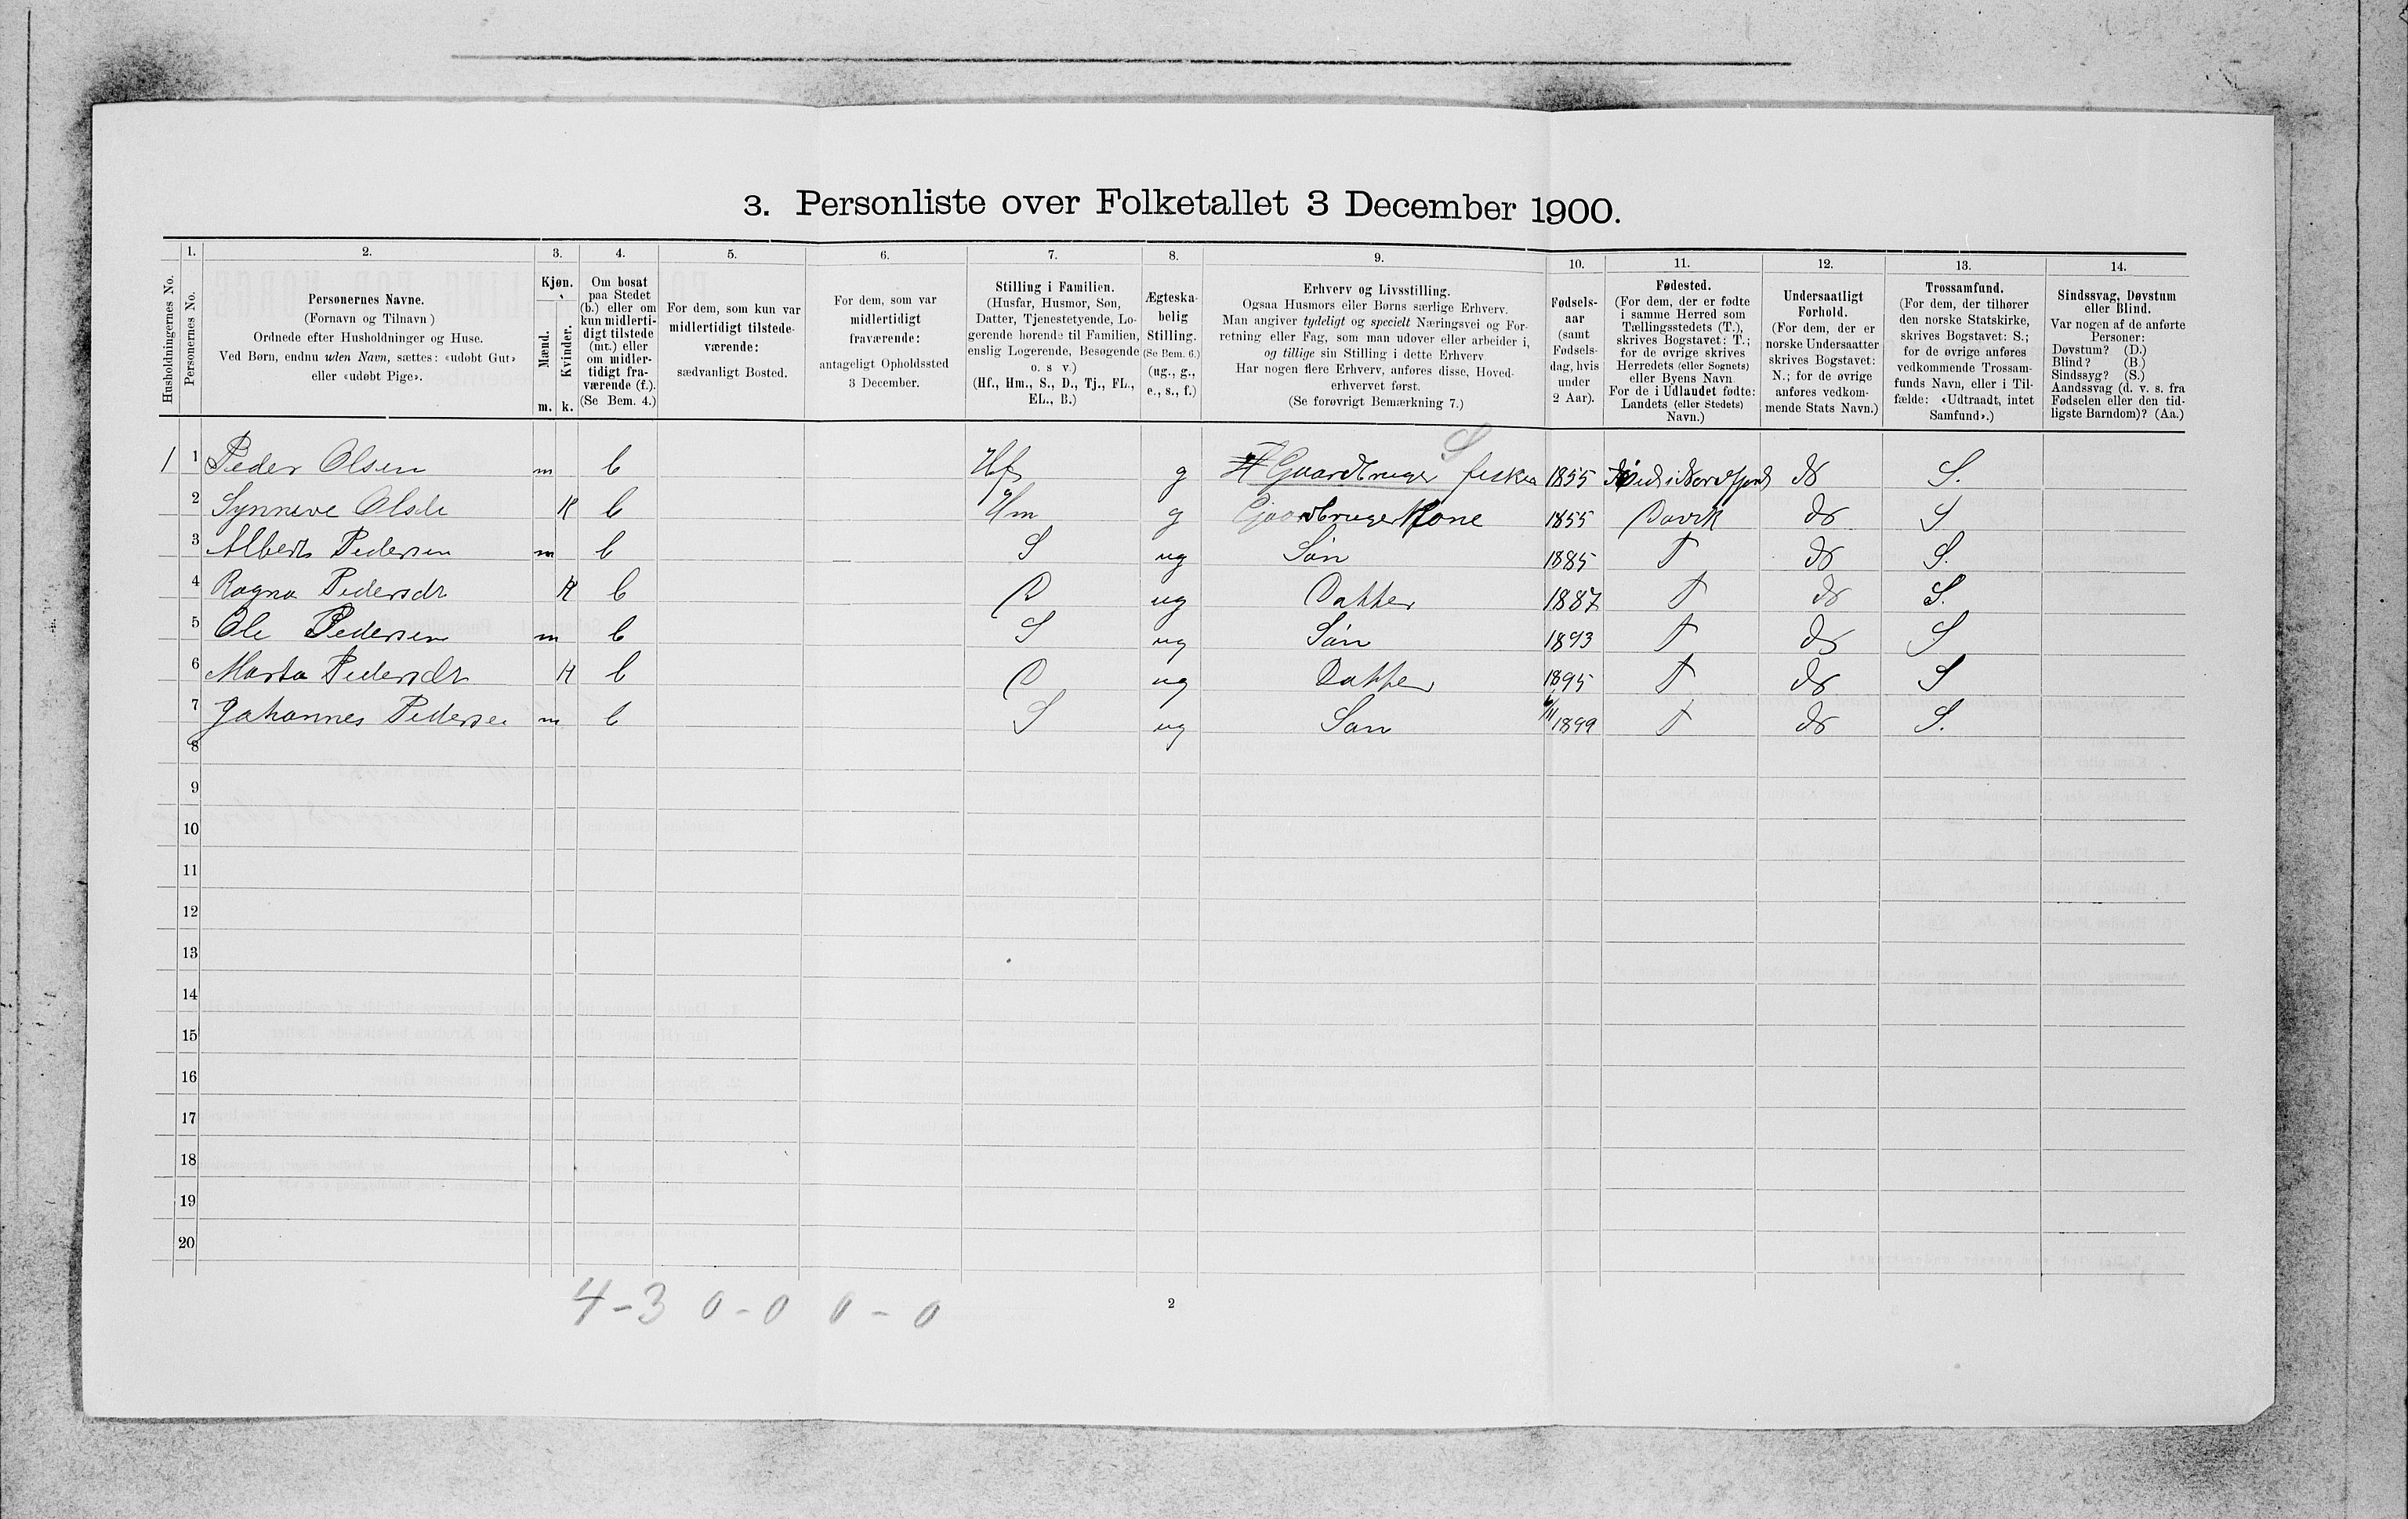 3. Personliste over Folketallet 3 December 1900.
Husholdningernes No.
1.
Personernes No.
2.
Personernes Navne.
(Fornavn og Tilnavn)
Ordnede efter Husholdninger og Huse.
Ved Børn, endnu uden Navn, sættes: «udøbt Gut»
eller «udøbt Pige».
3.
Kjøn.
Mænd.
Kvinder.
m. k.
4.
Om bosat
paa Stedet
(b.) eller om
kun midlerti-
digt tilstede
(mt.) eller
om midler-
tidigt fra-
værende (f.).
(Se Bem. 4.)
5.
For dem, som kun var
midlertidigt tilstede-
værende:
sædvanligt Bosted.
6.
For dem, som var
midlertidigt
fraværende:
antageligt Opholdssted
3 December.
7.
Stilling i Familien.
(Husfar, Husmor, Søn,
Datter, Tjenestetyende, Lo-
gerende hørende til Familien,
enslig Logerende, Besøgende
o. s v.)
(Hf., Hm., S., D., Tj., FL.,
EL., B.)
8.
Ægteska-
belig
Stilling.
(Se Bem. 6.)
(ug., g.,
e., s., f.)
9.
Erhverv og Livsstilling.
Ogsaa Husmors eller Børns særlige Erhverv.
Man angiver tydeligt og specielt Næringsvei og For-
retning eller Fag, som man udøver eller arbeider i,
og tillige sin Stilling i dette Erhverv.
Har nogen flere Erhverv, anføres disse, Hoved-
erhvervet først.
(Se forøvrigt Bemærkning 7.)
10.
Fødsels-
aar
(samt
Fødsels-
dag, hvis
under
2 Aar).
11.
Fødested.
(For dem, der er fødte
i samme Herred som
Tællingsstedets (T.),
skrives Bogstavet: T.;
for de øvrige skrives
Herredets (eller Sognets)
eller Byens Navn
For de i Udlandet fødte:
Landets (eller Stedets)
Navn.)
12.
Undersaatligt
Forhold.
(For dem, der er
norske Undersaatter
skrives Bogstavet:
N.; for de øvrige
anføres vedkom-
mende Stats Navn.)
13.
Trossamfund.
(For dem, der tilhører
den norske Statskirke,
skrives Bogstavet: S.;
for de øvrige anføres
vedkommende Trossam-
funds Navn, eller i Til-
fælde: «Udtraadt, intet
Samfund».)
14.
Sindssvag, Døvstum
eller Blind.
Var nogen af de anførte
Personer:
Døvstum? (D.)
Blind? (B.)
Sindssyg? (S.)
Aandssvag (d. v. s. fra
Fødselen eller den tid-
ligste Barndom)? (Aa.)
S
1 1 Peder Olsen m b Hf g Gaardbruger fisker 1855 i Nordfjord N S.
2 Synneve Olsdr K b Hm g Gaardbruger Kone 1855 Davik N S
3 Albert Pedersen m b S ug Søn 1885 T N S.
4 Ragna Pedersdr K b D ug Datter 1887 T N S.
5 Ole Pedersen m b S ug Søn 1893 T N S
6 Marta Pedersdr K b D ug Datter 1895 T N S
7 Johannes Pedersen m b S ug Søn 6/11 1899 T N S.
8
9
10
11
12
13
14
15
16
17
18
19
20
4-3 0-0 0-0
2